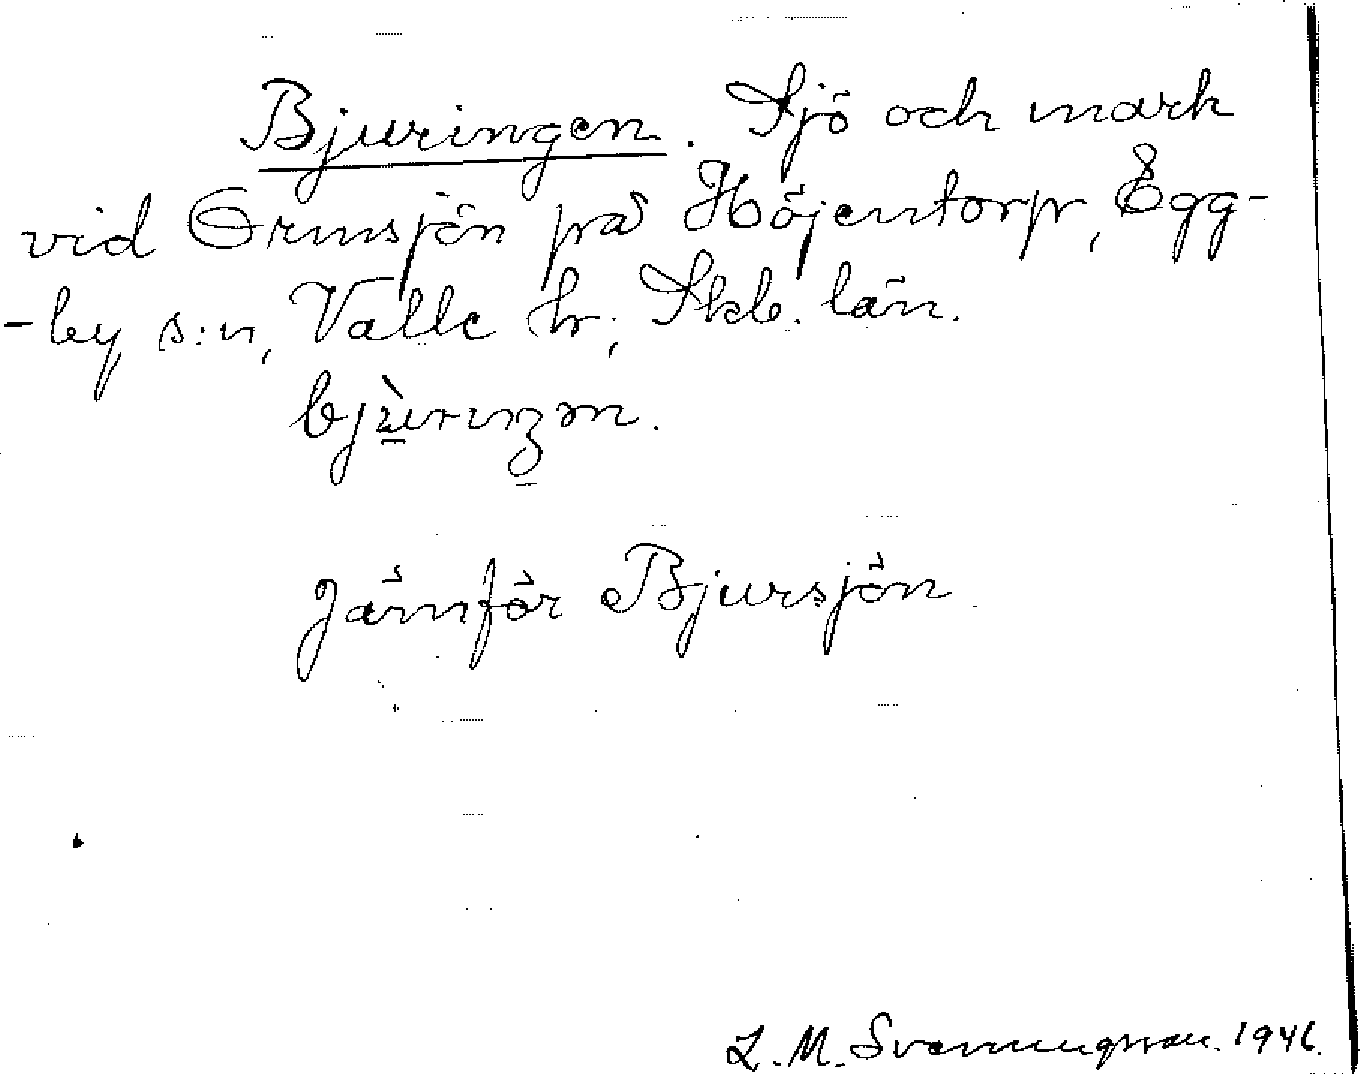 Bjuringen. Sjö och mark
vid Ormsjön på Höjentorp, Egg-
-by s:n, Valle hr, Skb. län.
bjùriŋən.
Jämför Bjursjön
L. M. Svenungsson. 1946.